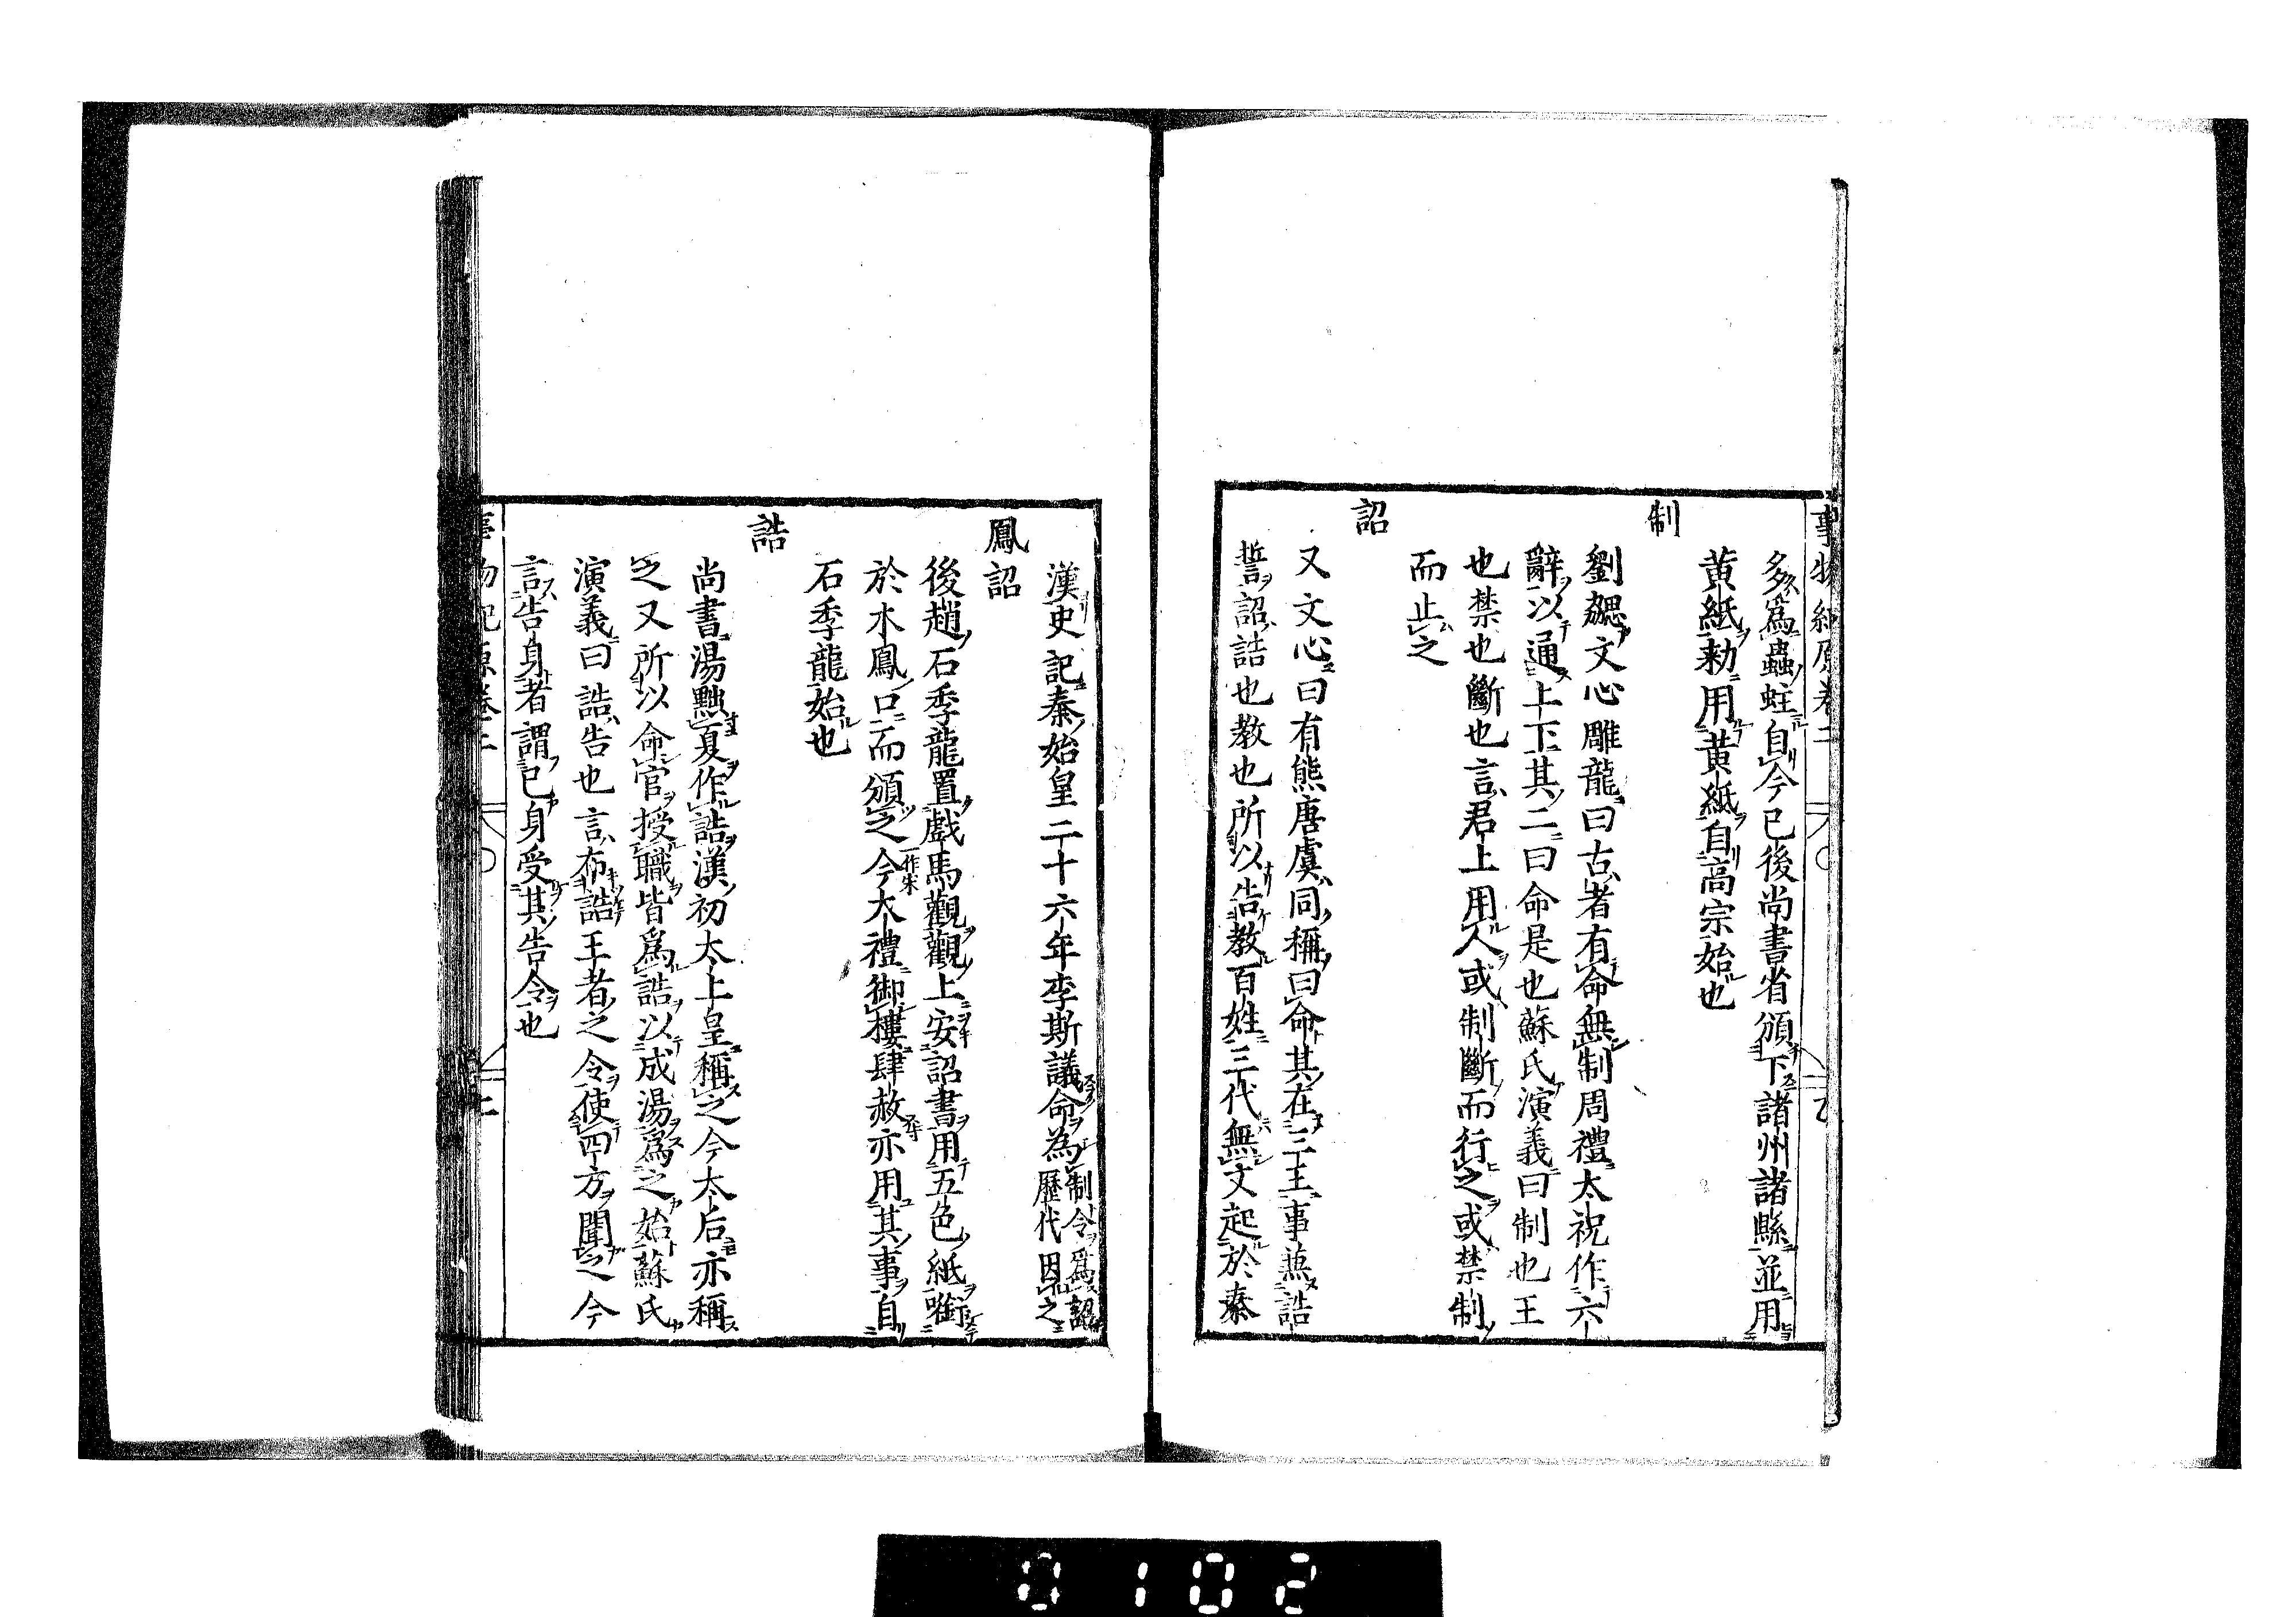 事物紀原卷二
多爲蟲蛀自今已後尚書省頒下諸州諸縣並用
黄紙勅用黄紙自高宗始也
制
劉勰文心雕龍曰古者有命無制周禮太祝作六
辭以通上下其二曰命是也蘇氏演義曰制也王
也禁也斷也言君上用人或制斷而行之或禁制
而止之
詔
又文心曰有熊唐虞同稱曰命其在三王事兼誥
誓詔誥也教也所以告教百姓三代無文起於秦
漢史記秦始皇二十六年李斯議命為制令爲詔
歷代因之
鳳詔
後趙石季龍置戲馬觀觀上安詔書用五色紙銜
於木鳳口而頒之今一作宋大禮御樓肆赦亦用其事自
石季龍始也
誥
尚書湯黜夏作誥漢初太上皇稱之今太后亦稱
之又所以命官授職皆爲誥以成湯爲之始蘇氏
演義曰誥告也言布誥王者之令使四方聞之今
言告身者謂已身受其告令也
0102